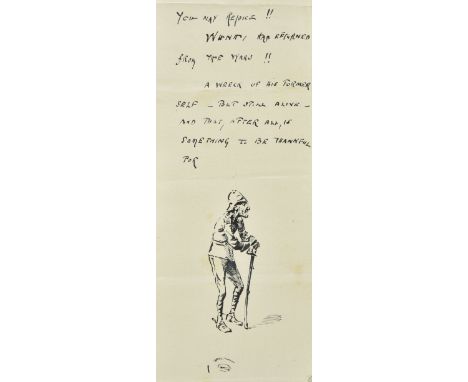 You may rejoice!!
has returned
from the wars!!
A wreck of his former
self - but still alive -
and that, after all, is
something to be thankful
for